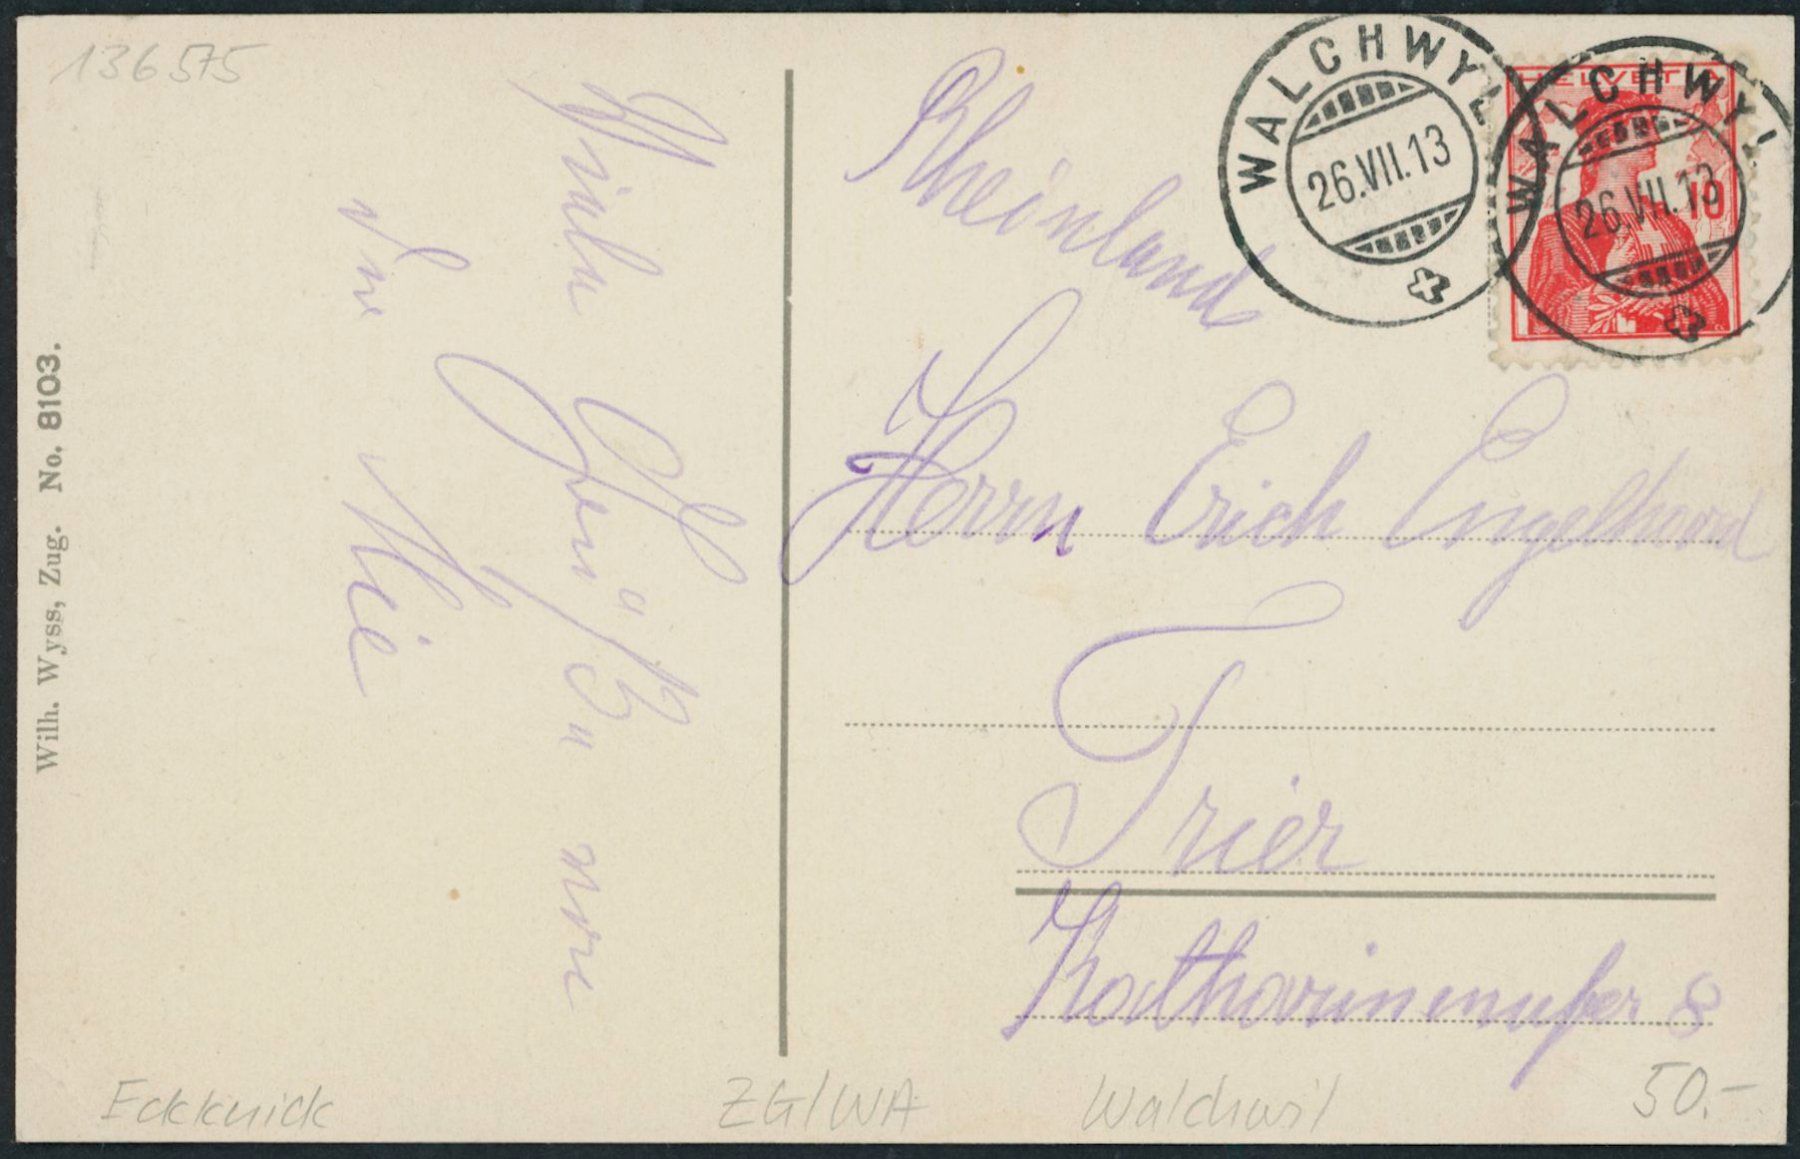 136575
Viele
Grüße von
Wilh. Wyss, Zug. No. 8103.
WALCHWYL
26.VII.13
HELVETIA
10
WALCHWYL
26.VII.13
Rheinland
Herrn Erich Engelhard
Trier
Katharinenufer 8
Eckknick
ZG/WA
Walchwil
50.-